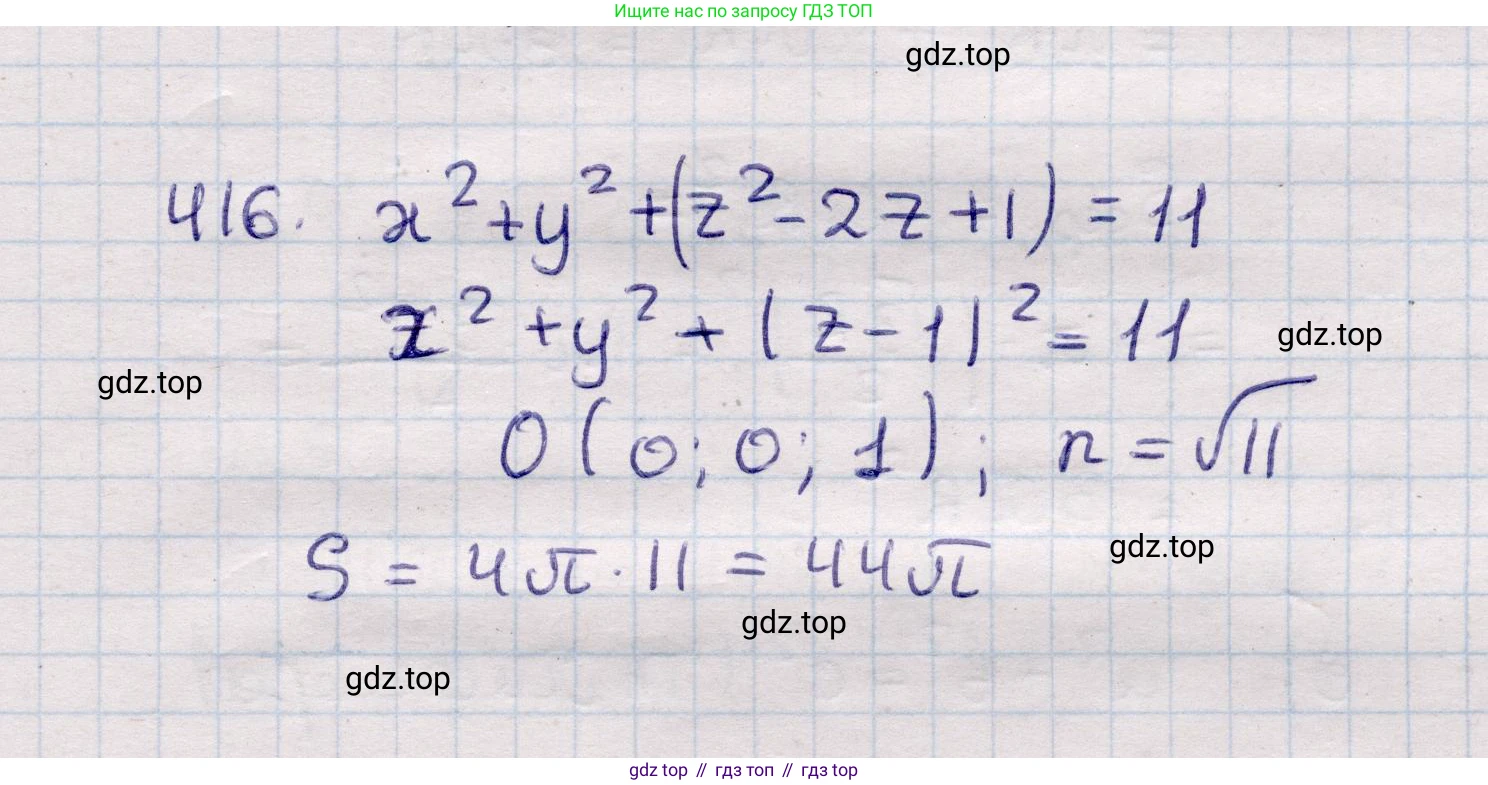 Ищите нас по запросу ГДЗ ТОП
gdz.top
416. x²+y²+(z²-2z+1)=11
x²+y²+(z-1)²=11
gdz.top
gdz.top
O(0;0;1); r=√11
S=4π·11=44π
gdz.top
gdz.top
gdz.top
gdz top // гдз топ // гдз top